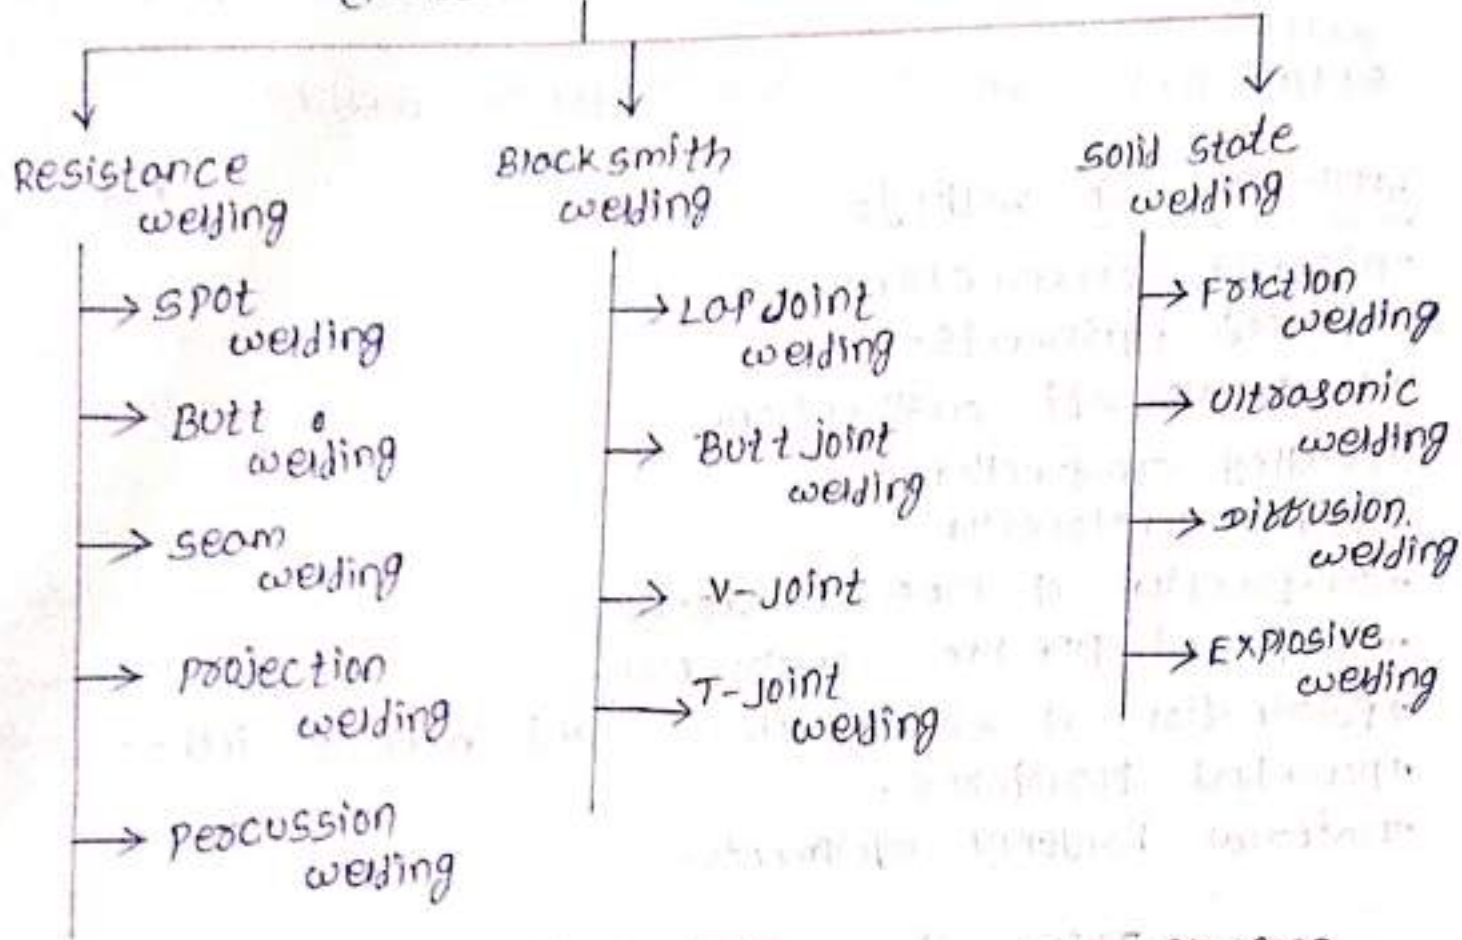 Resistance
welding
Spot
welding
Butt
welding
Seam
welding
Projection
welding
Percussion
welding
Blacksmith
welding
Lap Joint
welding
Butt joint
welding
V-Joint
T-Joint
welding
Solid state
welding
Friction
welding
Ultrasonic
welding
Diffusion.
welding
Explosive
welding